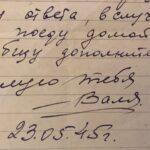 ответа, в случ
поеду домой
общу дополните
лую тебя
Валя.
23.05.45г.